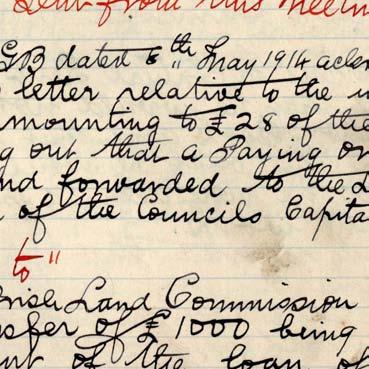 Sent from this Meetin
GB dated 6th May 1914 ackn
letter relative to the u
mounting to £28 of the
g out that a Paying or
nd forwarded to the L
of the Councils Capita
to "
Irish Land Commission
sfer of £1000 being
nt of the loan of